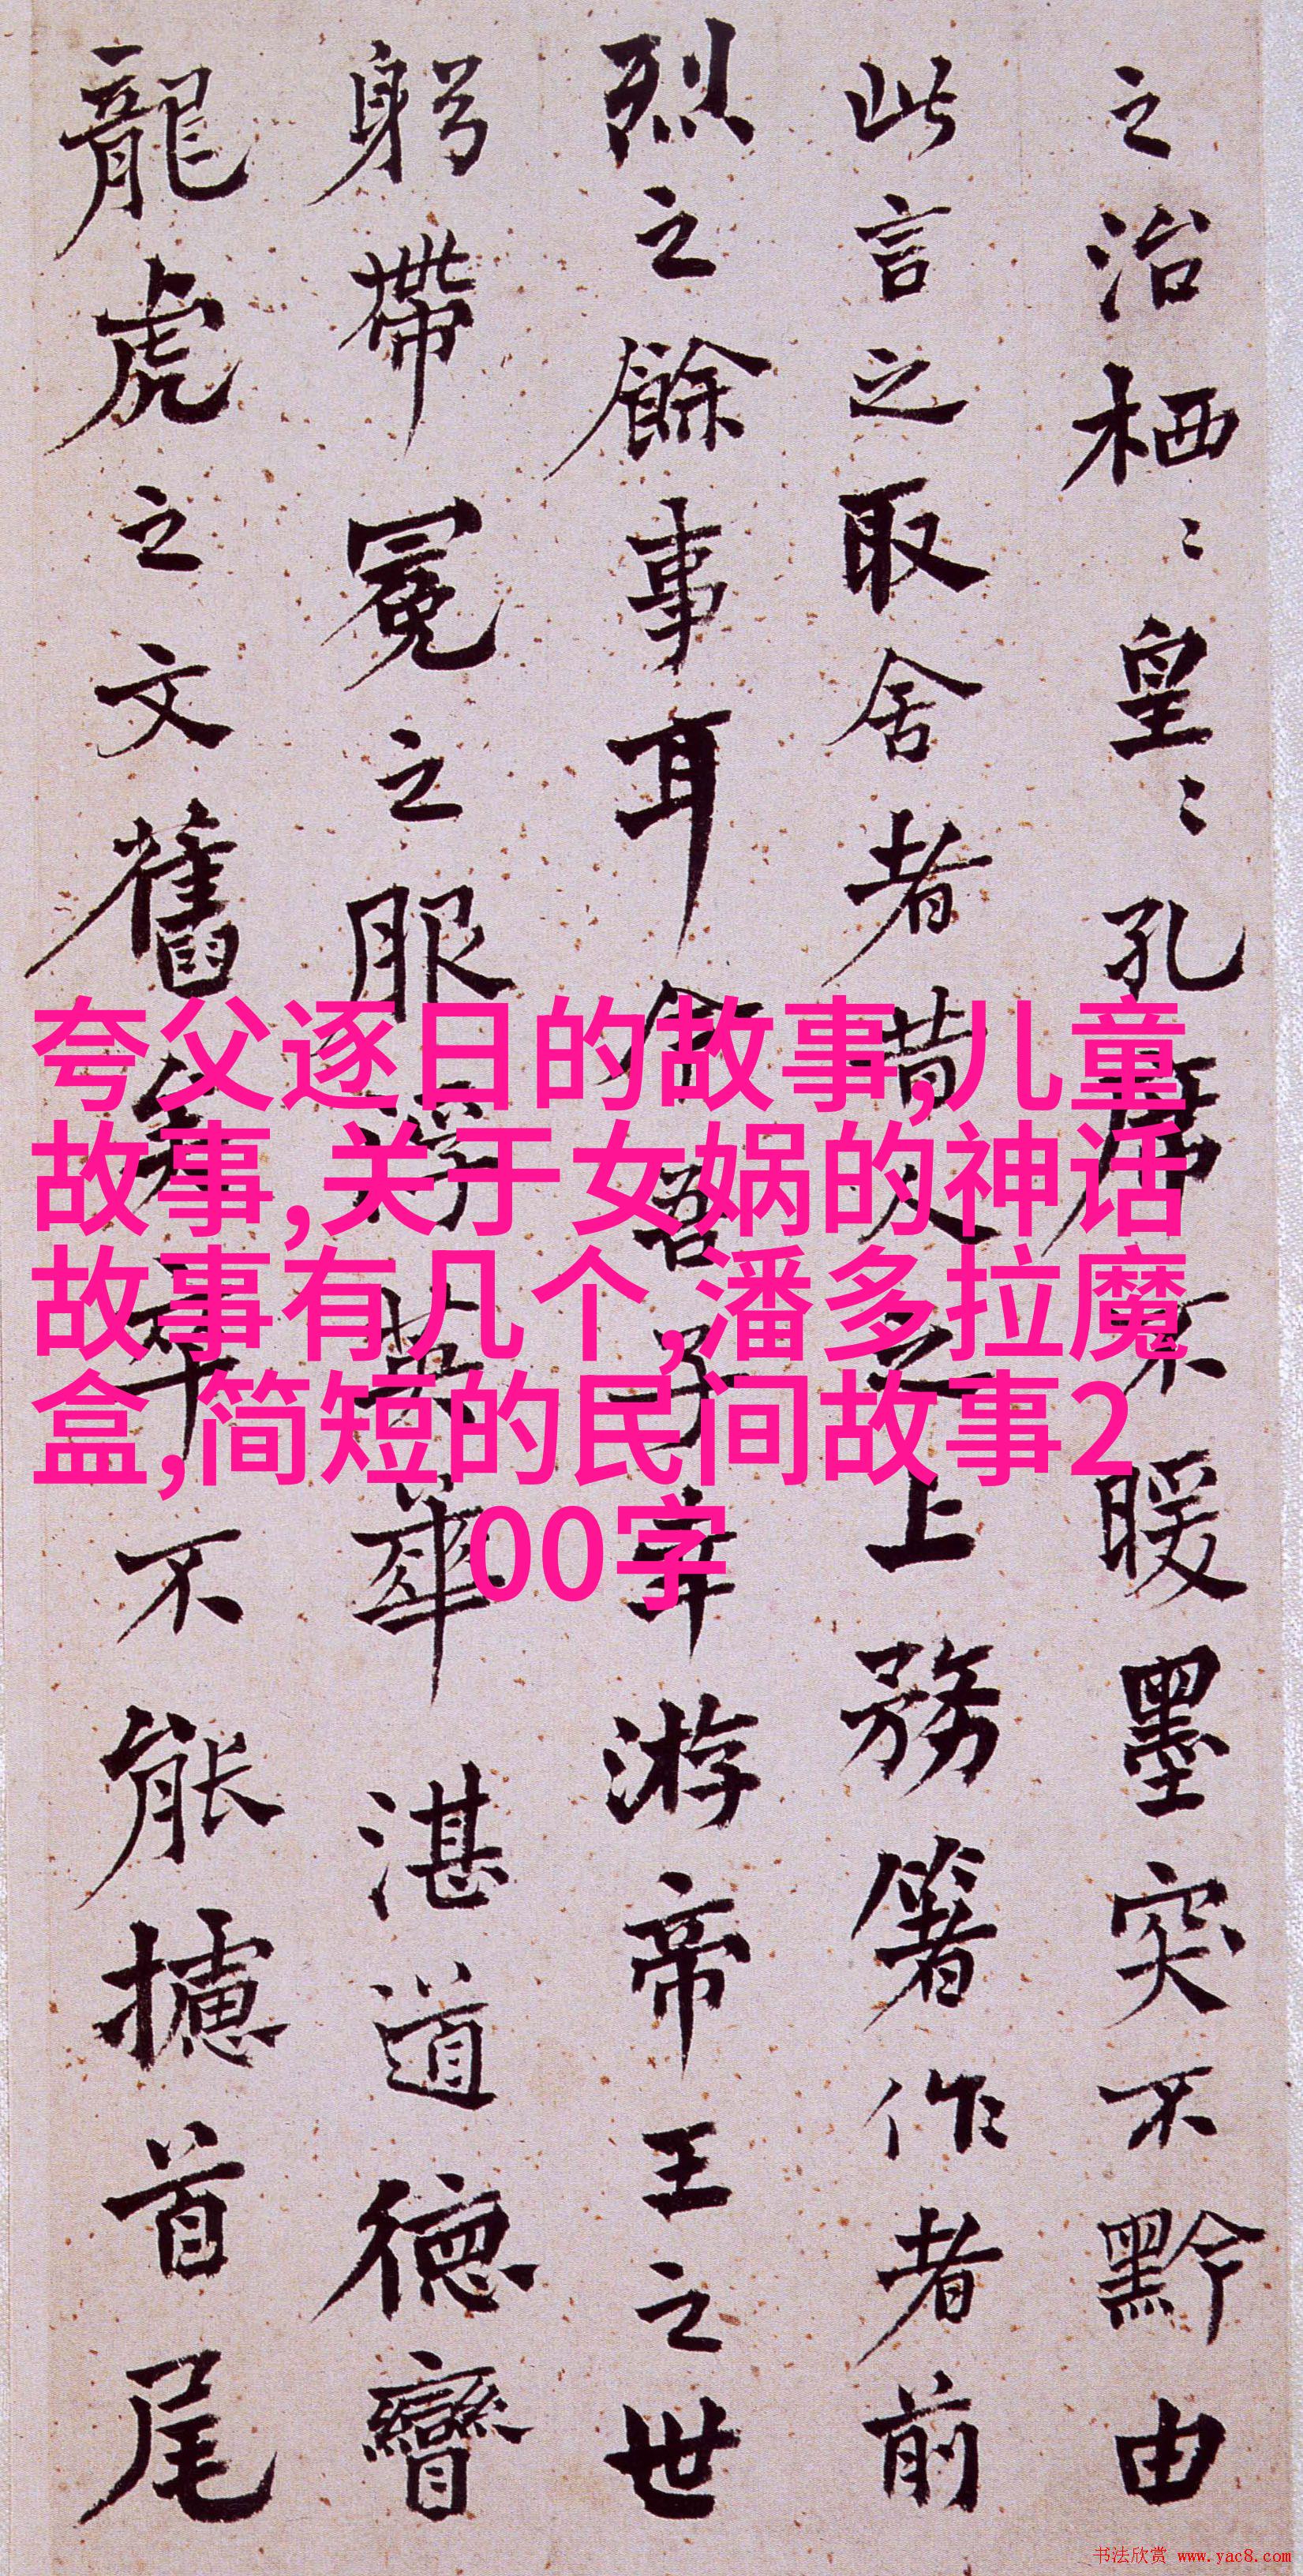 之治栖〻皇〻孔席不暖墨突不黔由
此言之取舍者昔人之上務箸作者前
烈之餘事耳今吾子幸游帝王之世
躬帶冕之服浮英華湛道德矕
龍虎之文舊矣卒不能攄首尾
夸父逐日的故事,儿童
故事,关于女娲的神话
故事有几个,潘多拉魔
盒,简短的民间故事2
00字
书法欣赏 www.yac8.com